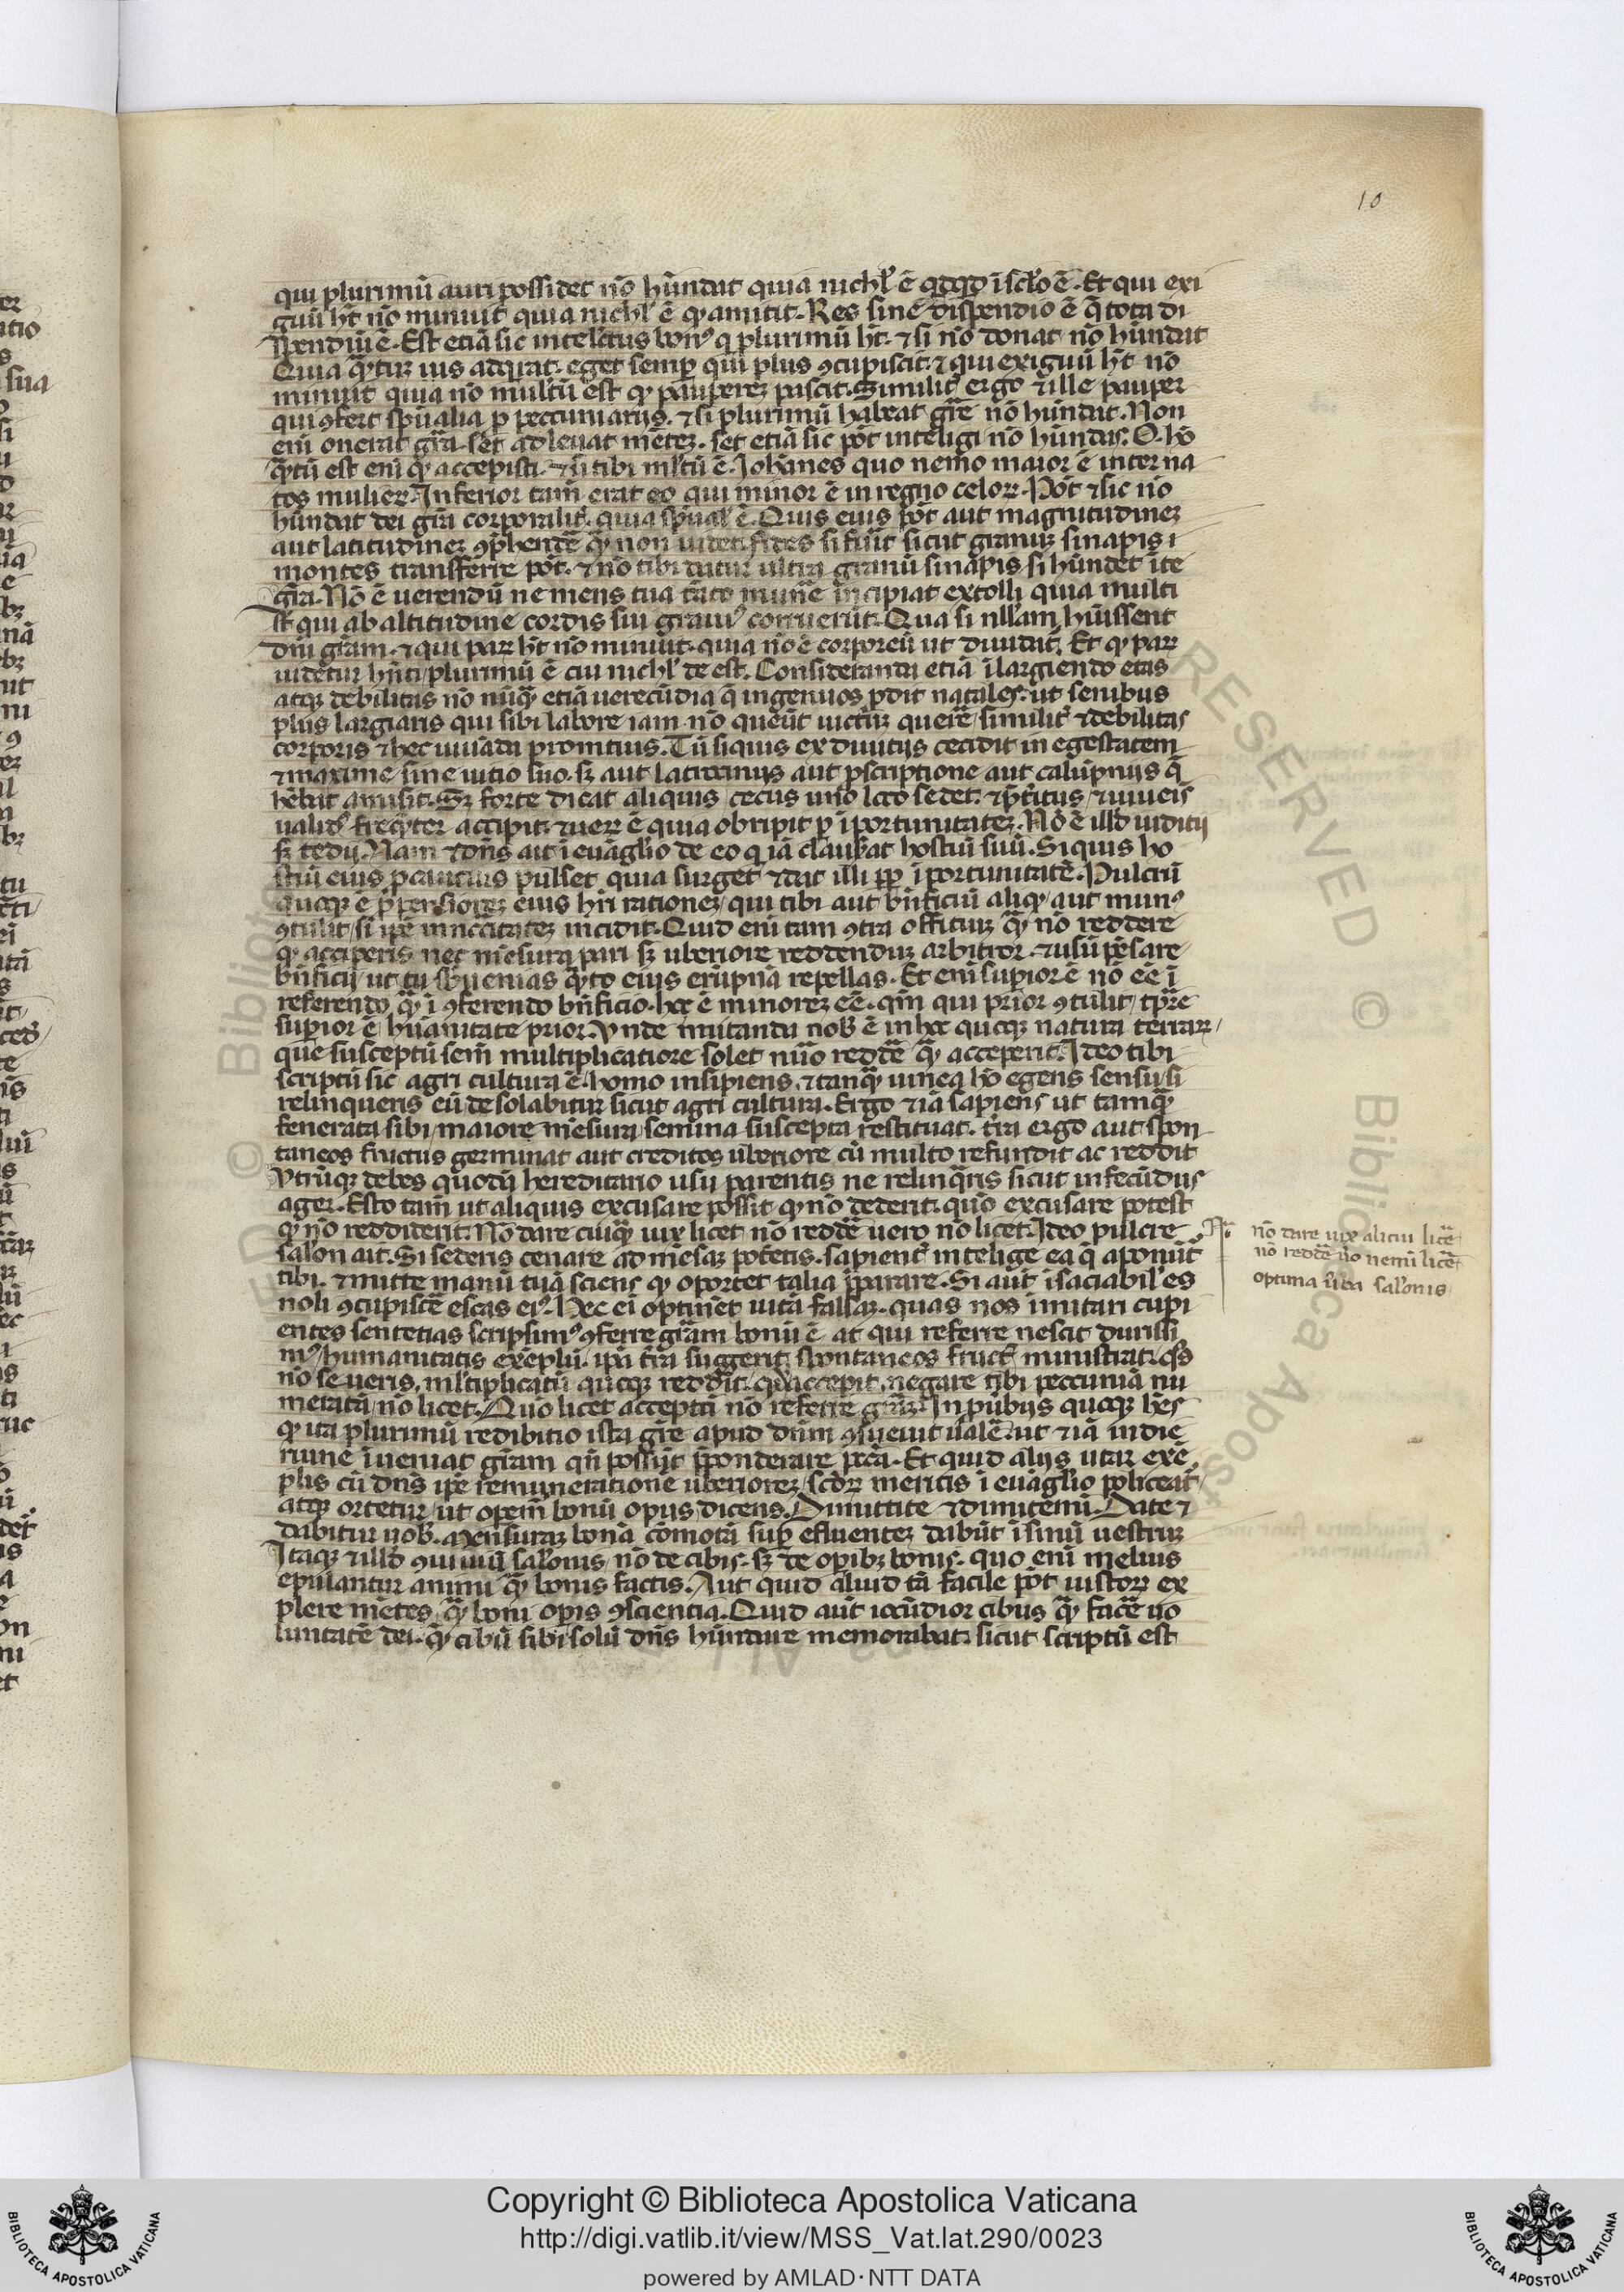 10
qui plurimũ auri possidet nõ hũndat quia nichl' ẽ qdqd ĩ sclo ẽ. Et qui exi
guũ ht nõ minuit quia nichl' ẽ qͥ amittit. Res sine dispendio ẽ q̃ tota di
spendiũ ẽ. Est etiã sic intellctus bonꝰ q plurimũ ht. ⁊ si nõ donat nõ hũndat
Quia q̃ꝫtuꝫ uis adqrat. eget semꝑ qui plus ꝯcupiscit. ⁊ qui exiguũ ht nõ
minuit quia nõ multũ est qͥ pauperez pascit. Similit' ergo ⁊ ille pauper
qui ꝯfert spũalia ꝓ peccuniariis. ⁊ si plurimũ habeat grẽ nõ hũndat. Non
eni onerat grã. set adleuat mẽteꝫ. set etiã sic põt inteligi nõ hũndas. O. hõ
q̃ꝫtũ est eni qͥ accepisti. ⁊ si tibi mltũ ẽ. Johãnes quo nemo maior ẽ inter na
tos mulieꝝ. Inferior tam̃ erat eo qui minor ẽ in regno celoꝝ. Põt ⁊ sic nõ
hũndat dei grã corporalit'. quia spũal' ẽ. Quis eius põt aut magnitudineꝫ
aut latitudineꝫ ꝯp̃hendẽ q̃ꝫ non uidet. fides si fũit sicut granuꝫ sinapis ĩ
montes transferre põt. ⁊ nõ tibi datur ultra granũ sinapis si hũndet ĩ te
grã. Nõ ẽ uerendũ ne mens tua tãto munẽ incipiat extolli quia multi
st qui ab altitudine cordis sui grauiꝰ corruerũt. Qua si nllam hũissent
dnĩ grãm. ⁊ qui paꝝ ht nõ minuit. quia nõ ẽ corporeũ ut diuidat. Et qͥ paꝝ
uidetur hñti plurimũ ẽ cui nichl' de est. Consideranda etiã ĩ largiendo etas
atqꝫ debilitas nõ nũqͣ etiã uerecũdia q̃ ingenuos ꝓdit natales. ut senibus
plus largiaris qui sibi labore iam nõ queũt uictuꝫ querẽ. similit' ⁊ debilitas
corporis ⁊ hec iuuãda promtius. Tũ siquis ex diuitiis cecidit in egestatem
⁊ maxime sine uitio suo. sꝫ aut latrociniis aut ꝓscriptione aut calũpniis q̃
hẽbat amisit. Sꝫ forte dicat aliquis cecus uno lco sedet. ⁊ p̃titus ⁊ iuueis
ualidꝰ freq̃ter accipit. ⁊ ueꝝ ẽ quia obripit ꝑ ĩportunitateꝫ. Nõ ẽ illd iuditii
sꝫ tedii. Nam ⁊ dñs ait ĩ euãglio de eo q iã clauẽat hostiũ suũ. Siquis ho
stiũ eius procacius pulset quia surget ⁊ dat illi ꝓꝑ ĩportunitatẽ. Pulcrũ
quoqꝫ ẽ ꝓpensioreꝫ eius hri rationeꝫ qui tibi aut bñficiũ aliqͥ aut munꝰ
ꝯtulit si ipẽ in necitateꝫ incidit. Quid eni tam ꝯtra officiuꝫ qͣ nõ reddere
qͥ acciperis nec mẽsura pari sꝫ uberiore reddenduꝫ arbitror. ⁊ usũ pẽsare
bñficii ut tu sb̃uenias q̃to eius erũpna repellas. Et eni supior ẽ nõ eẽ ĩ
referendo qͣ ĩ ꝯferendo bñficio. hoc ẽ minoreꝫ eẽ. qm̃ qui prior ꝯtulit tp̃re
supior ẽ hũanitate prior. Vnde imitanda nob' ẽ in hoc quoqꝫ natura terraꝝ
que susceptũ sem̃ multiplicatiore solet nũo reddẽ qͣ acceperit. Ideo tibi
scriptũ sic agri cultura ẽ homo insipiens. ⁊ tanqͣ uinea hõ egens sensu si
relinqueris eũ desolabitur sicut agri cultura. Ergo ⁊ iã sapiens ut tamqͣ
fenerata sibi maiore mẽsura semina suscepta restituat. tra ergo aut spon
taneos fructus germinat aut creditos uberiore cũ multo refundit ac reddit
Vtrũqꝫ debes quodã hereditario usu parentis ne relinq̃ris sicut infecũdus
ager. Esto tam̃ ut aliquis excusare possit qͥ nõ dederit. quõ excusare potest
qͥ nõ reddiderit. Nõ dare cuiqͣ uix licet. nõ reddẽ uero nõ licet. Ideo pulcre
salon ait. Si sederis cenare ad mẽsaꝫ potẽtis. sapient' intelige ea q̃ aponũt'
tibi. ⁊ mitte manũ tuã sciens qͥ oportet talia p̃parare. Si aut ĩsaciabil' es
noli ꝯcupiscẽ escas eiꝰ. Hec ei optinẽt uitã falsaꝫ. quas nos imitari cupi
entes sentẽtias scripsimꝰ ꝯferre grãm bonũ ẽ at qui referre nescit durissi
mꝰ. humanitatis exẽplũ. ipã tra suggerit. spontaneos fruct' ministrat. qs
nõ seueris. mltiplicatũ quoqꝫ reddit. qd accepit. negare tibi peccuniã nu
meratã nõ licet. Quo licet acceptã nõ referre grãꝫ. In ꝓubiis quoqꝫ hẽs
qͥ ita plurimũ redibitio ista grẽ apud dũm ꝯsueuit ualẽ. ut ⁊ iã in die
ruine ĩueniat grãm qñ possũt p̃ponderare pcã. Et quid aliis utar exẽ
plis cũ dñs ipẽ remuneratione uberioreꝫ scõꝝ meritis ĩ euãglio policeat'
atqꝫ ortetur ut opem̃ bonũ opus dicens. Dimittite ⁊ dimitemĩ. Date ⁊
dabitur uob'. Mensuraꝫ bonã cõmotã suꝑ efluenteꝫ dabũt ĩ sinũ uestruꝫ
Itaqꝫ ⁊ illd ꝯuiuiũ salonis nõ de cibis. sꝫ de opibꝫ bonis. quo eni melius
epulantur animi qͣ bonis factis. Aut quid aliud tã facile põt iustoꝝ ex
plere mẽtes qͣ boni opis ꝯscientia. Quid aũt iocũdior cibus qͣ facẽ uo
luntatẽ dei. qͣ cibũ sibi solũ dñs hũndare memorabat. sicut scriptũ est
nõ dare uix alicui licẽ
nõ reddẽ ũo nemĩ licẽ
optima ↄ̃ salonis
Copyright © Biblioteca Apostolica Vaticana
http://digi.vatlib.it/view/MSS_Vat.lat.290/0023
powered by AMLAD·NTT DATA
BIBLIOTECA APOSTOLICA VATICANA
BIBLIOTECA APOSTOLICA VATICANA